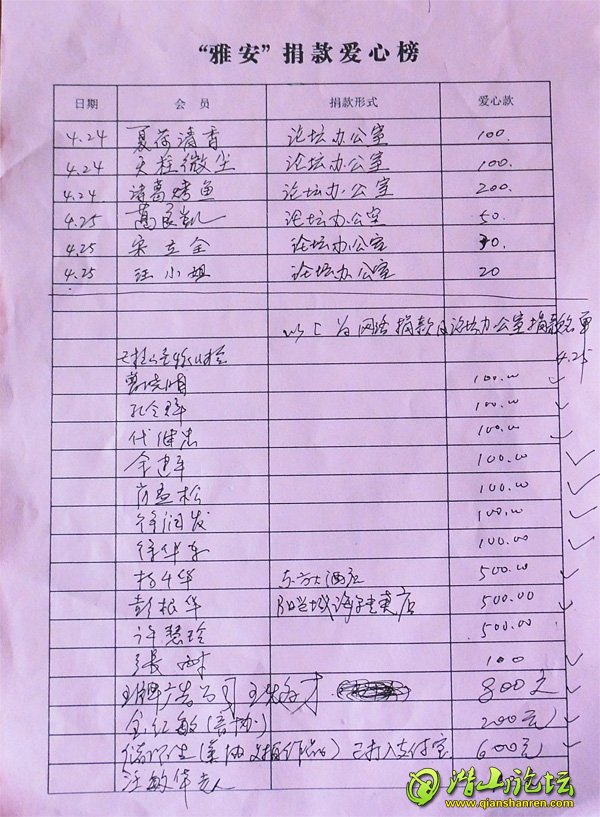 “雅安”捐款爱心榜
日期 会员 捐款形式 爱心款
4.24 夏荷清香 论坛办公室 100.
4.24 天柱微尘 论坛办公室 100.
4.24 诸葛烤鱼 论坛办公室 200.
4.25 葛良凯 论坛办公室 50.
4.25 宋立全 论坛办公室 30.
4.25 汪小姐 论坛办公室 20
以上为网络捐款及论坛办公室捐款名单
4.25
100.00
孔令辉 100.00
代继忠 100.00
余建军 100.00
肖益松 100.00
徐润发 100.00
徐华东 100.00
杨华 东方大酒店 500.00
彭根华 店 500.00
许慧玲 500.00
张 100
广告公司 800元
金红敏 200元
已打入支付宝 600元
汪敏华夫人
潜山论坛
www.qianshanren.com